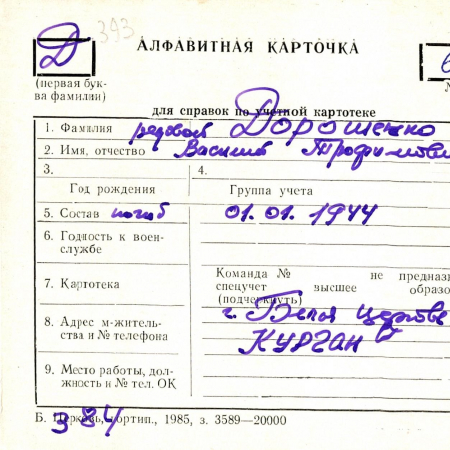 Д
393
АЛФАВИТНАЯ КАРТОЧКА
(первая бук-
ва фамилии)
для справок по учетной картотеке
1. Фамилия рядовой Дорошенко
2. Имя, отчество Василий Трофимови
3.
4.
Год рождения
Группа учета
5. Состав погиб 01.01.1944
6. Годность к воен-
службе
7. Картотека
Команда № не предназ
спецучет высшее образо
(подчеркнуть)
8. Адрес м-житель-
ства и № телефона
г. Белая Церковь
КУРГАН
9. Место работы, дол-
жность и № тел. ОК
384
Б. Церковь, гортип., 1985, з. 3589—20000